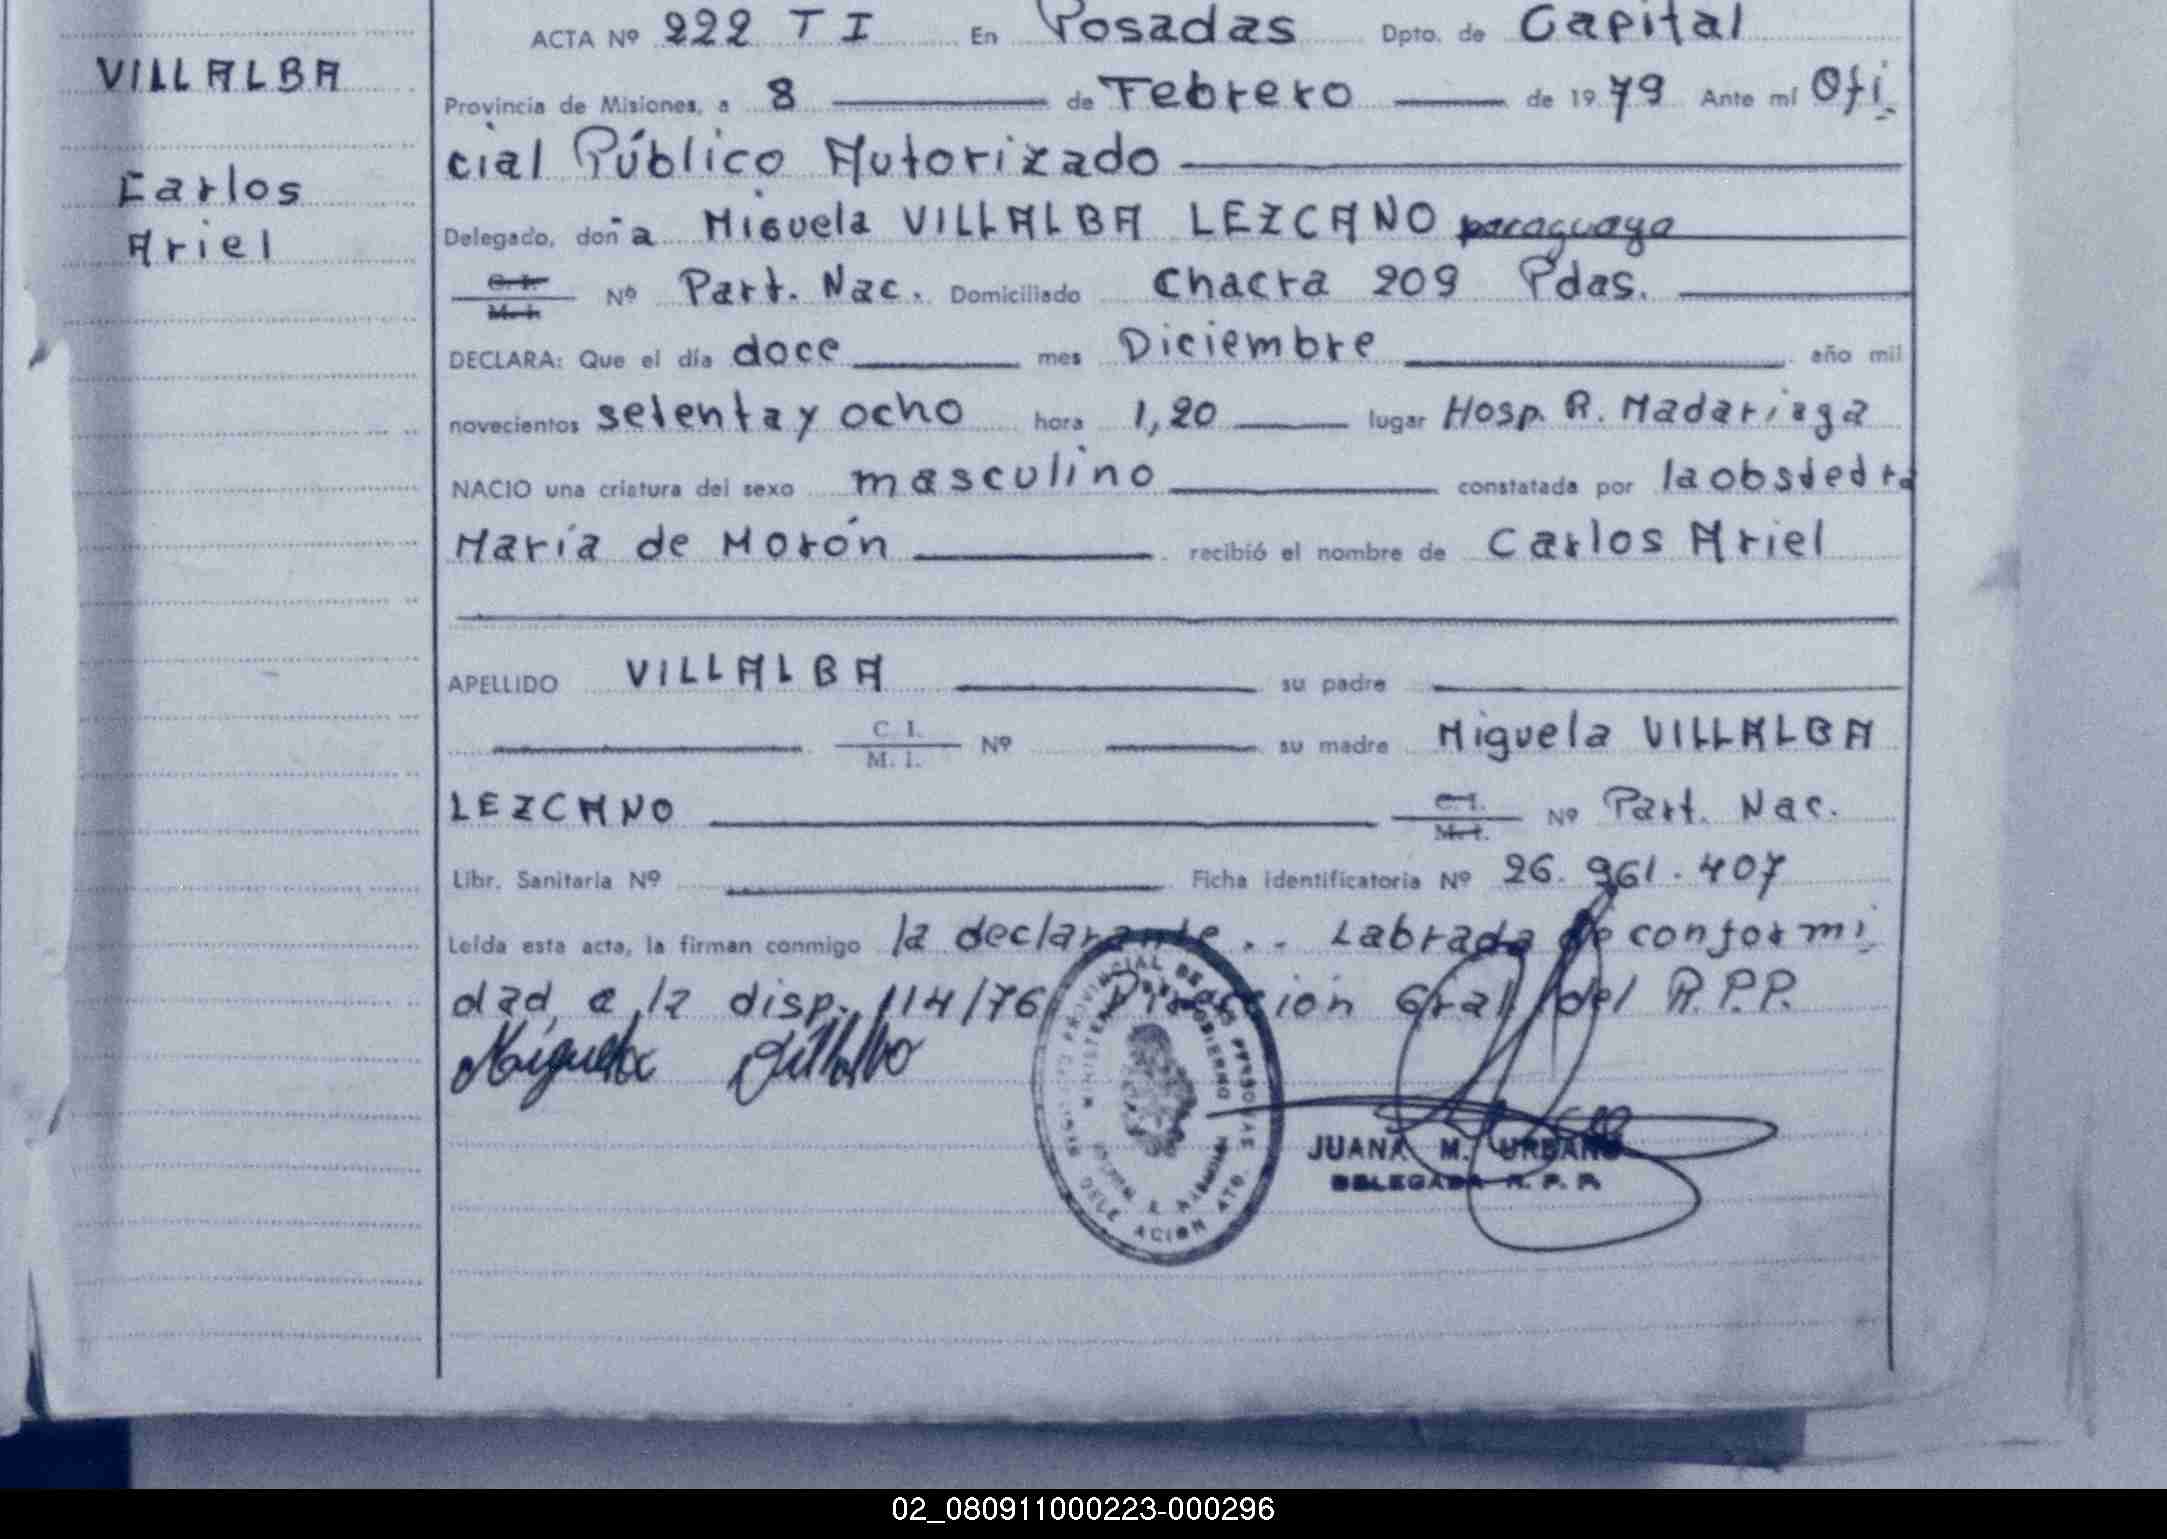 VILLALBA
Carlos
Ariel
ACTA Nº 222 T I En Posadas Dpto. de Capital
Provincia de Misiones, a 8 de Febrero de 1979 Ante mí Ofi
cial Público Autorizado
Delegado, doña Miguela VILLALBA LEZCANO paraguaya
C. I. M. I. Nº Part. Nac. Domiciliado Chacra 209 Pdas.
DECLARA: Que el día doce mes Diciembre año mil
novecientos setenta y ocho hora 1,20 lugar Hosp. R. Madariaga
NACIO una criatura del sexo masculino constatada por la obstetra
María de Morón recibió el nombre de Carlos Ariel
APELLIDO VILLALBA su padre
C. I. M. I. Nº su madre Miguela VILLALBA
LEZCANO C. I. M. I. Nº Part. Nac.
Libr. Sanitaria Nº Ficha identificatoria Nº 26.961.407
Leída esta acta, la firman conmigo la declarante.. Labrada de conformi
dad, a la disp. 114/76 Dirección Gral del R.P.P.
Miguela Villalba
JUANA M. URBANO
DELEGADA R. P. P.
02_080911000223-000296